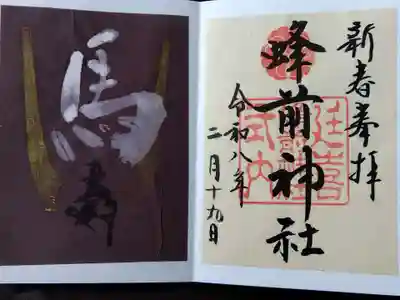 新春奉拝
蜂前神社
延喜
式内
令和八年
二月十九日
馬
寿